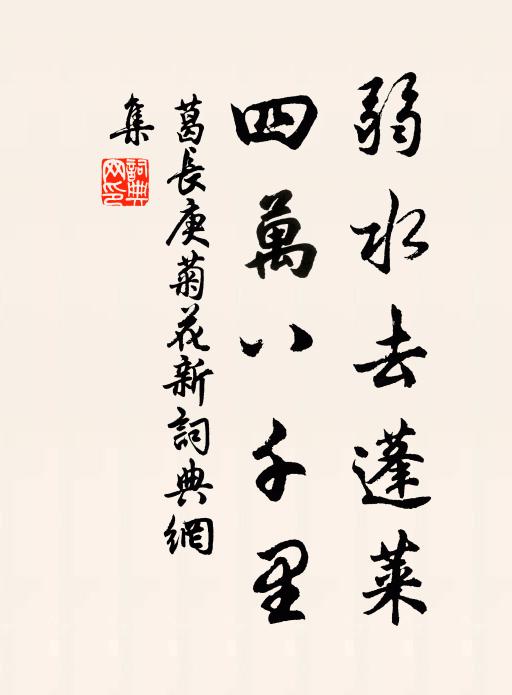 弱水去蓬萊
四萬八千里
葛長庚菊花新詞典網
集
詞典
网印